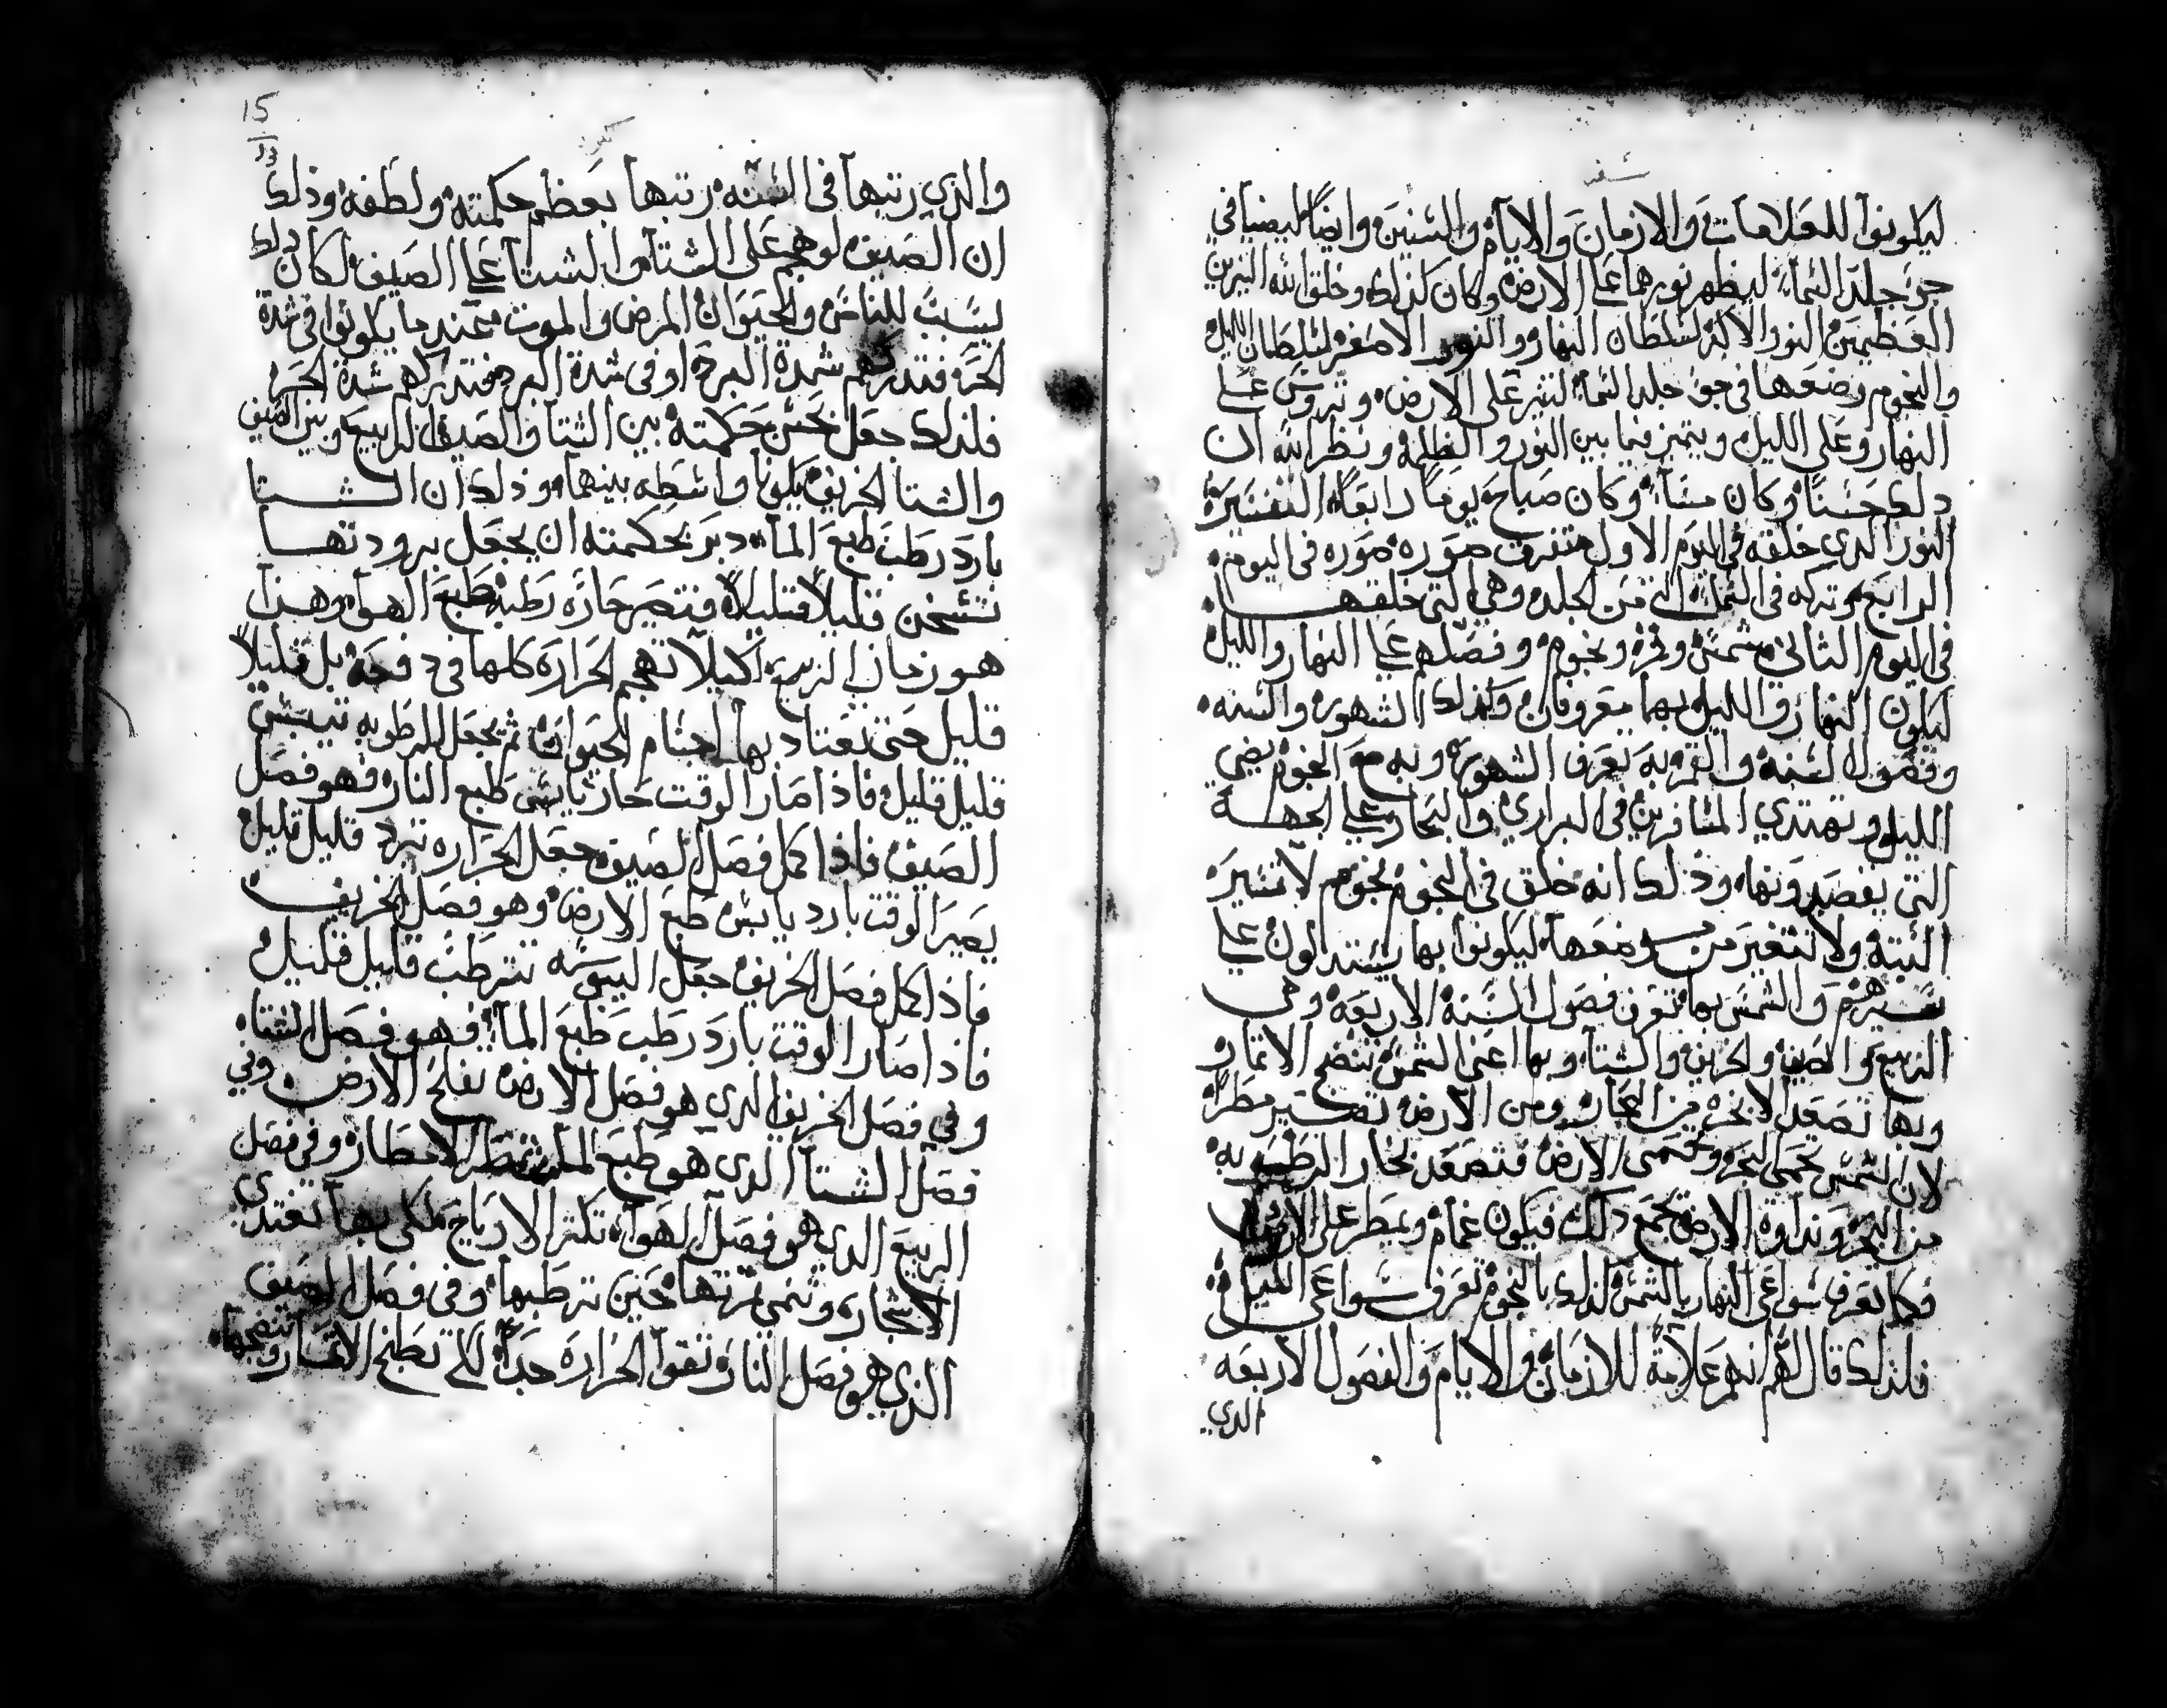 سفر
ليكونوا للعلامات والازمان والايام والسنين وايضاً ليضيا في
جو جلد السماء ليظهر نورهما على الارض وكان كذلك وخلق الله النيرين
العظيمين النور الاكبر لسلطان النهار والنور الاصغر لسلطان الليل
والنجوم وضعها في جو جلد السماء لتنير على الارض وتروس على
النهار وعلى الليل ويتميز فيما بين النور والظلمة ونظر الله ان
دلك حسناً وكان مساء وكان صباح يوماً رابعاً التفسير
النور الدي خلقه في اليوم الاول متفرق صوره صوره في اليوم
الرابع وتركه في السماء التي من الجلد وهي التي خلقها
في اليوم الثاني شمس وقمر ونجوم وفصلهم على النهار والليل
ليكون النهار والليل بهما معروفان وكذلك الشهور والسنه
وفصول السنه والقمر به تعرف الشهور وبه مع النجوم يضي
الليل وتهتدي المسافرين في البراري والبحار على الجهة
التي يقصدونها وذلك انه خلق في النجوم نجوم لا تسير
البتة ولا تتغير من وضعها ليكونوا بها يستدلون على
سيرهم والشمس بها تعرف فصول السنة الاربعه وهي
الربيع والصيف والخريف والشتاء وبها اعني الشمس تنضج الاتمار
وبها تصعد الابخره من البحار ومن الارض تصير مطراً
لان الشمس تحمي البحر وتحمي الارض فتصعد بخار الرطوبه
من البحر ونداوة الارض تجمع ذلك فيكون غمام ويمطر على الارض
فكما تعرف سواعي النهار بالشمس كذلك بالنجوم تعرف سواعي الليل
فلذلك قال الهم انهم علامة للازمان والايام والفصول الاربعه
الدي
15
والذي رتبها في السنه رتبها بعظم حكمته ولطفه وذلك
ان الصيف لو هجم على الشتا والشتا على الصيف لكان ذلك
يسبب للناس والحيوان المرض والموت عندما يكونوا في شدة
الحر فتدركهم شدة البرد او في شدة البرد فتدركهم شدة الحر
فلذلك جعل بحسن حكمته بين الشتا والصيف الربيع وبين الصيف
والشتا الخريف يكونا واسطه بينهما وذلك ان الشتا
بارد رطب طبع الماء دبر بحكمته ان يجعل برودتها
تسخن قليلاً قليلاً فتصير حاره رطبه طبع الهوا وهذا
هو زمان الربيع لكيلا تهجم الحراره كلها في دفعه بل قليلاً
قليل حتى تعتاد بها اجسام الحيوان ثم يجعل الرطوبه تيبس
قليل قليل فاذا صار الوقت حار يابس طبع النار فهو فصل
الصيف فاذا كمل فصل الصيف جعل الحراره تبرد قليل قليل
يصير الوقت بارد يابس طبع الارض وهو فصل الخريف
فاذا كمل فصل الخريف جعل اليبوسه تترطب قليل قليل
فاذا صار الوقت بارد رطب طبع الماء فهو فصل الشتاء
وفي فصل الخريف الدي هو فصل الارض تفلح الارض وفي
فصل الشتا الدي هو طبع الماء تمطر الامطار وفي فصل
الربيع الدي هو فصل الهواء تكتر الارياح لكي بها تغتدي
الاشجار وتنمي ثمرتها حين ترطبها وفي فصل الصيف
الذي هو فصل النار تقوا الحراره جداً لكي تطبخ الاتمار وتنضجها